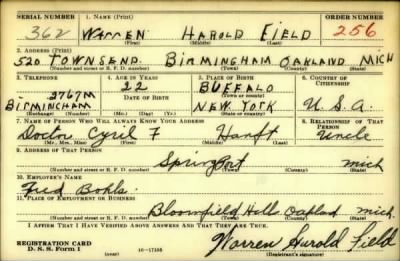 SERIAL NUMBER 1. NAME (Print) ORDER NUMBER
362 WARREN HAROLD FIELD 256
(First) (Middle) (Last)
2. ADDRESS (Print)
520 TOWNSEND. BIRMINGHAM OAKLAND MICH
(Number and street or R. F. D. number) (Town) (County) (State)
3. TELEPHONE 4. AGE IN YEARS 5. PLACE OF BIRTH 6. COUNTRY OF CITIZENSHIP
2767M 22 BUFFALO
DATE OF BIRTH (Town or county)
BIRMINGHAM NEW YORK U.S.A.
(Exchange) (Number) (Mo.) (Day) (Yr.) (State or country)
7. NAME OF PERSON WHO WILL ALWAYS KNOW YOUR ADDRESS 8. RELATIONSHIP OF THAT PERSON
Doctor Cyril F Hanft Uncle
(Mr., Mrs., Miss) (First) (Middle) (Last)
9. ADDRESS OF THAT PERSON
Springport Mich
(Number and street or R. F. D. number) (Town) (County) (State)
10. EMPLOYER'S NAME
Fred Bohls.
11. PLACE OF EMPLOYMENT OR BUSINESS
Bloomfield Hills Oakland Mich.
(Number and street or R. F. D. number) (Town) (County) (State)
I AFFIRM THAT I HAVE VERIFIED ABOVE ANSWERS AND THAT THEY ARE TRUE.
REGISTRATION CARD
D. S. S. Form 1 (over) 16-17105 Warren Harold Field
(Registrant's signature)